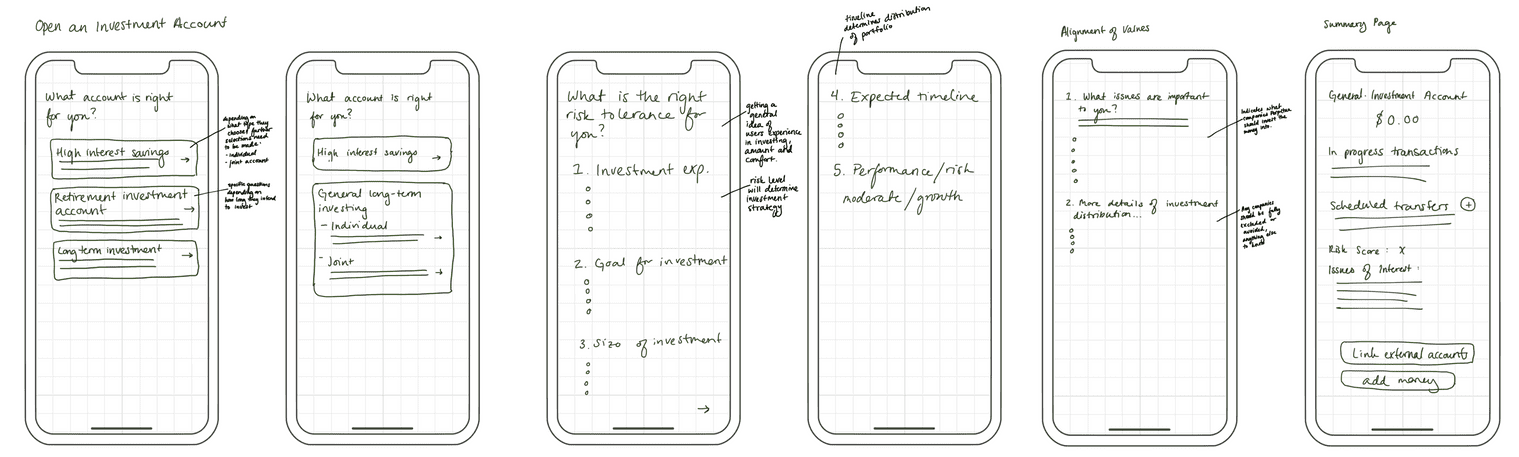 Open an Investment Account
What account is right
for you?
High interest savings
Retirement investment
account
Long term investment
depending on
what type they
choose further
selections need
to be made.
- individual
- joint account
specific questions
depending on
how long they intend
to invest
What account is right
for you?
High interest savings
General long-term
investing
- Individual
- Joint
What is the right
risk tolerance for
you?
1. Investment exp.
2. Goal for investment
3. Size of investment
getting a
general
idea of
users experience
in investing,
amount and
comfort.
risk level
will determine
investment
strategy
timeline
determines distribution
of portfolio
4. Expected timeline
5. Performance/risk
moderate/growth
Alignment of Values
1. What issues are important
to you?
2. More details of investment
distribution...
Indicates what
companies
should invest the
money into.
Any companies
should be fully
excluded or
avoided,
anything else
to
Summary Page
General Investment Account
$0.00
In progress transactions
Scheduled transfers +
Risk Score: X
Issues of Interest:
Link external accounts
add money